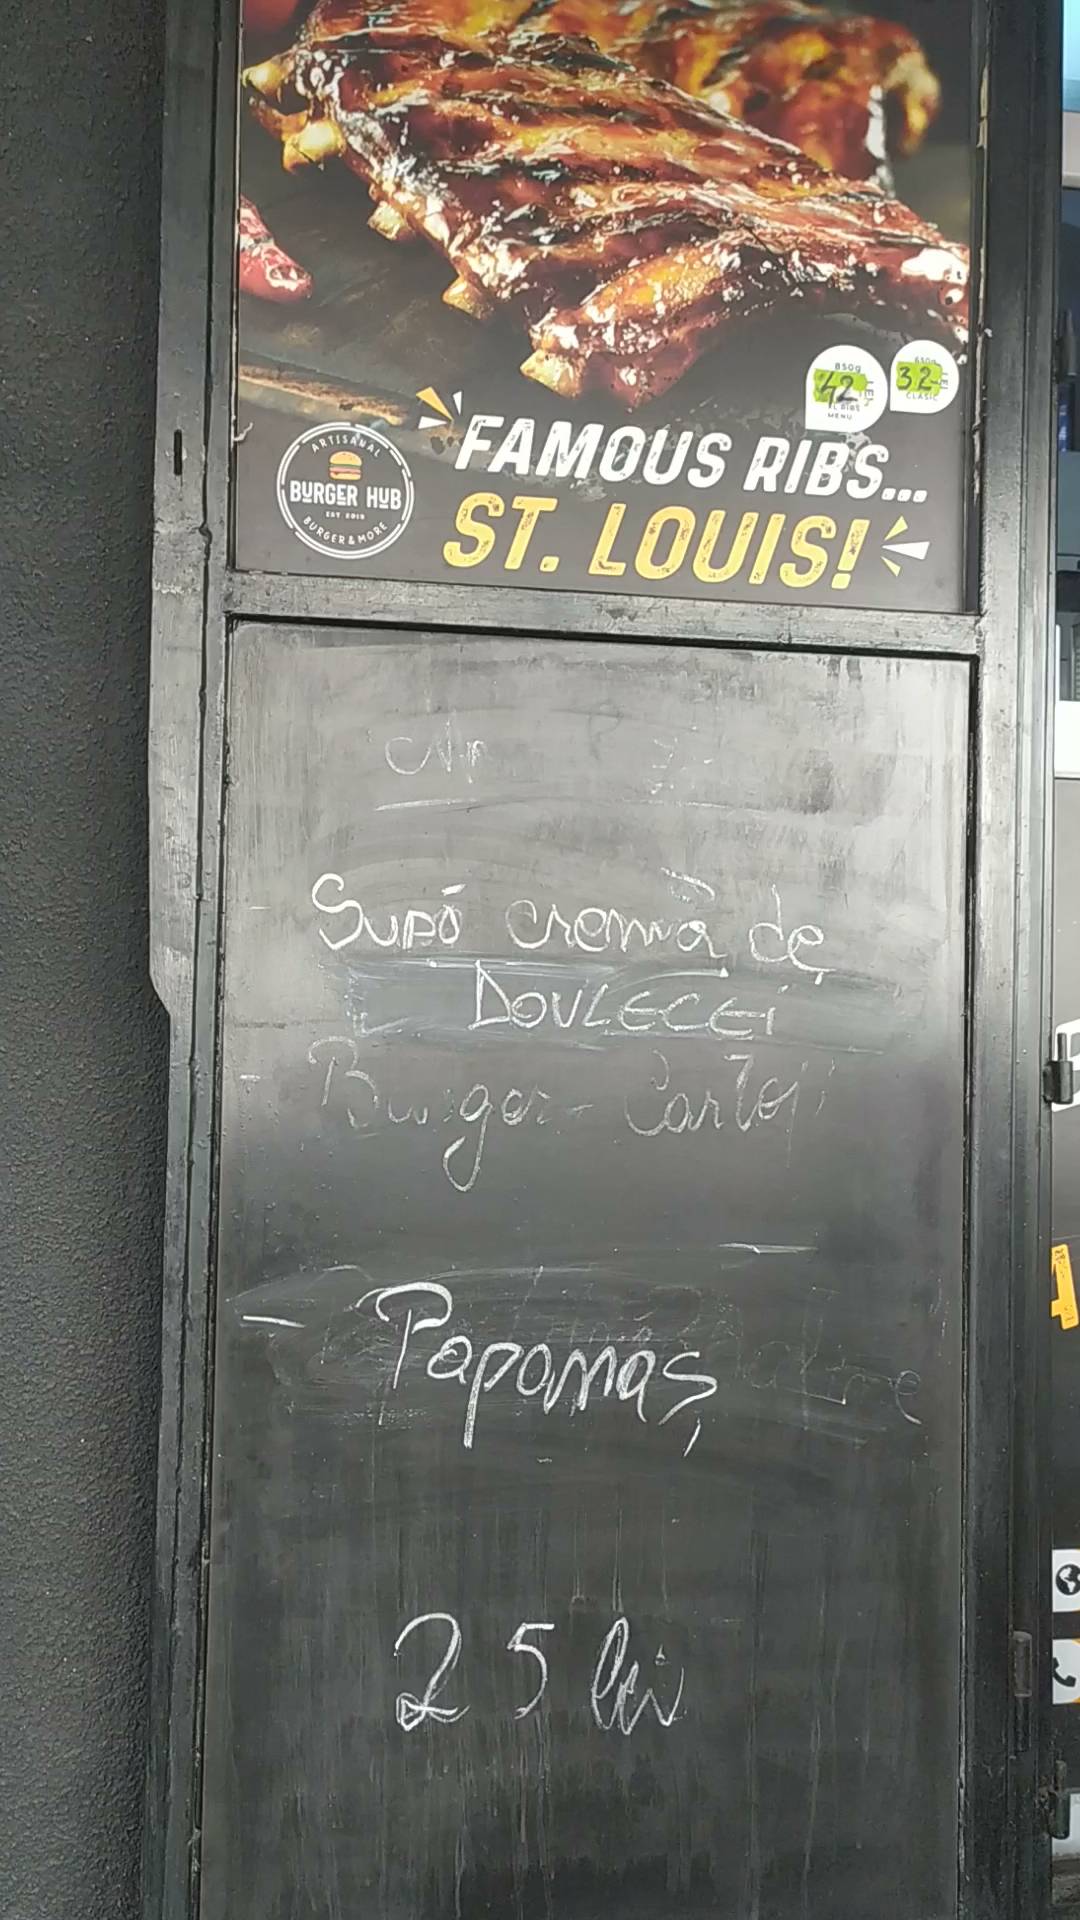 850g
42
LEI
XL RIBS
MENU
650g
32
LEI
CLASIC
FAMOUS RIBS...
ST. LOUIS!
ARTISANAL
BURGER HUB
EST 2019
BURGER & MORE
- Supă cremă de
DOVLECEI
- Burger - Cartofi
- Papanaș
25 lei